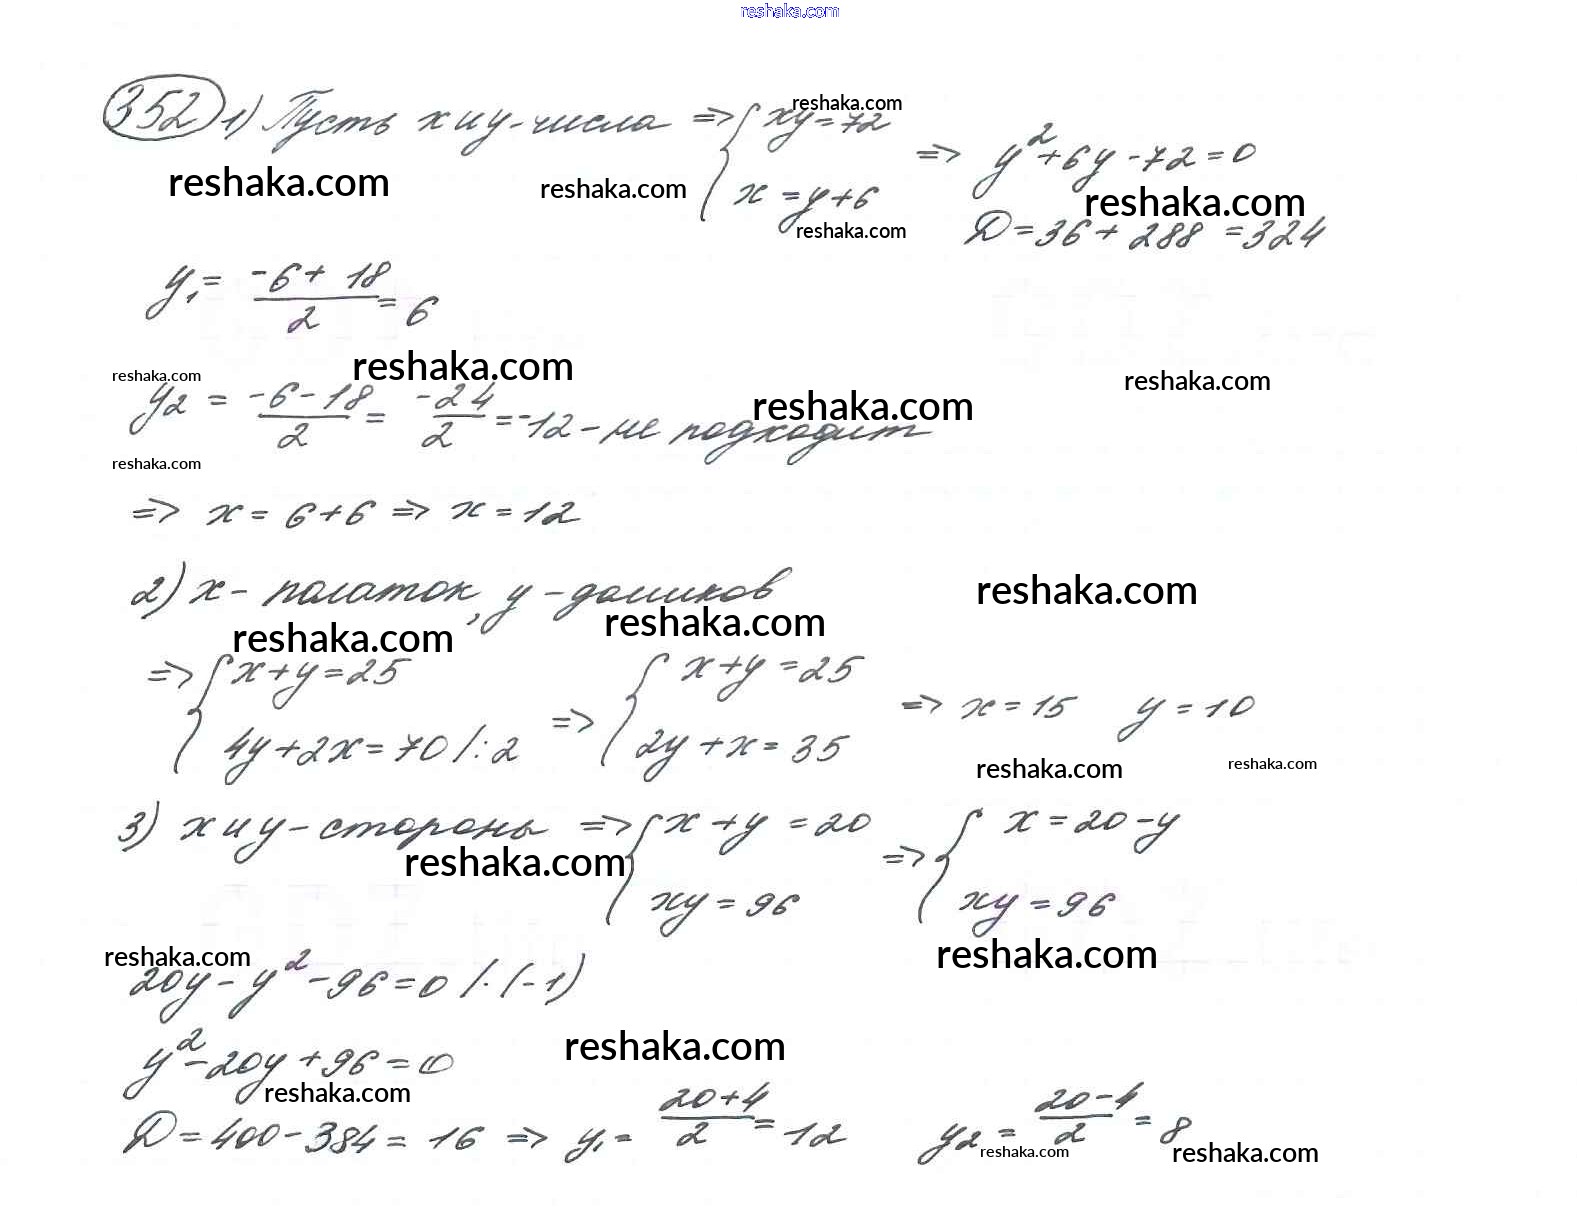 reshaka.com
352 1) Пусть x и y - числа => { xy = 72 reshaka.com
x = y + 6 => y² + 6y - 72 = 0
reshaka.com reshaka.com reshaka.com reshaka.com
Д = 36 + 288 = 324
y₁ = (-6 + 18)/2 = 6
reshaka.com reshaka.com reshaka.com reshaka.com
y₂ = (-6 - 18)/2 = -24/2 = -12 - не подходит
reshaka.com
=> x = 6 + 6 => x = 12
2) x - палаток, y - домиков reshaka.com
reshaka.com reshaka.com
=> { x + y = 25 => { x + y = 25 => x = 15 y = 10
4y + 2x = 70 /:2 2y + x = 35
reshaka.com reshaka.com
3) x и y - стороны => { x + y = 20 => { x = 20 - y
reshaka.com
xy = 96 xy = 96
reshaka.com reshaka.com
20y - y² - 96 = 0 /·(-1)
reshaka.com
y² - 20y + 96 = 0
reshaka.com
Д = 400 - 384 = 16 => y₁ = (20 + 4)/2 = 12 y₂ = (20 - 4)/2 = 8
reshaka.com reshaka.com